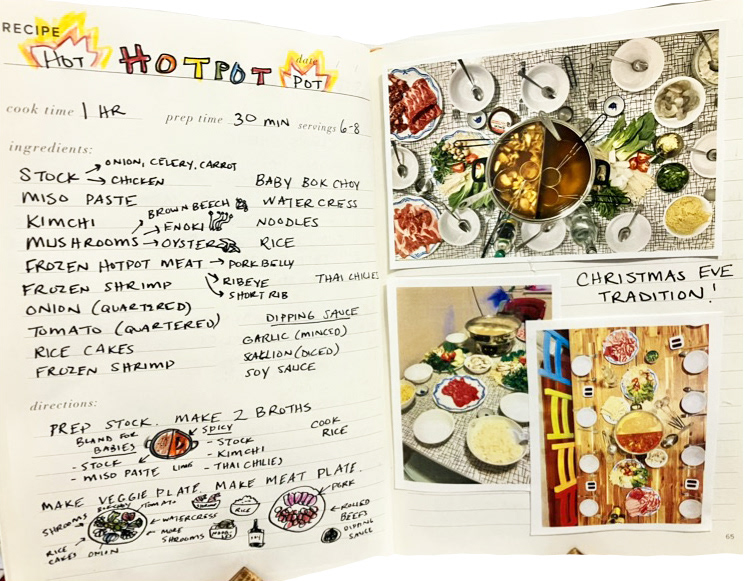 RECIPE
HOT HOTPOT POT
date
cook time 1 HR prep time 30 MIN servings 6-8
ingredients:
STOCK → ONION, CELERY, CARROT
→ CHICKEN
MISO PASTE
KIMCHI
MUSHROOMS → BROWN BEECH
→ ENOKI
→ OYSTER
FROZEN HOTPOT MEAT → PORK BELLY
→ RIBEYE
→ SHORT RIB
FROZEN SHRIMP
ONION (QUARTERED)
TOMATO (QUARTERED)
RICE CAKES
FROZEN SHRIMP
BABY BOK CHOY
WATERCRESS
NOODLES
RICE
THAI CHILIES
DIPPING SAUCE
GARLIC (MINCED)
SCALLION (DICED)
SOY SAUCE
directions:
PREP STOCK. MAKE 2 BROTHS
BLAND FOR
BABIES
- STOCK
- MISO PASTE
SPICY
- STOCK
- KIMCHI
- THAI CHILIES
COOK
RICE
MAKE VEGGIE PLATE. MAKE MEAT PLATE.
SHROOMS
TOMATO
WATERCRESS
MORE
SHROOMS
RICE
CAKES
ONION
RICE
PORK
ROLLED
BEEFS
DIPPING
SAUCE
CHRISTMAS EVE
TRADITION!
65